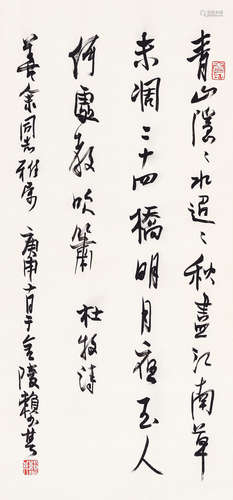 青山隱〻水迢〻秋盡江南草
未凋二十四橋明月夜玉人
何處教吹簫 杜牧詩
善余同志雅屬 庚申十月于金陵賴少其